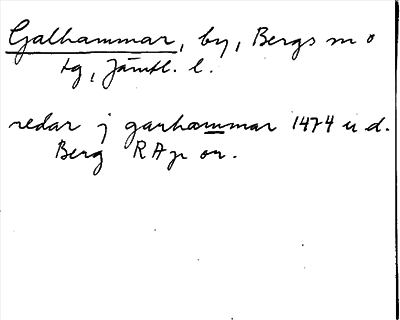 Galhammar, by, Bergs sn o
tg, Jämtl. l.
redar j garhammar 1474 u d.
Berg RAp or.